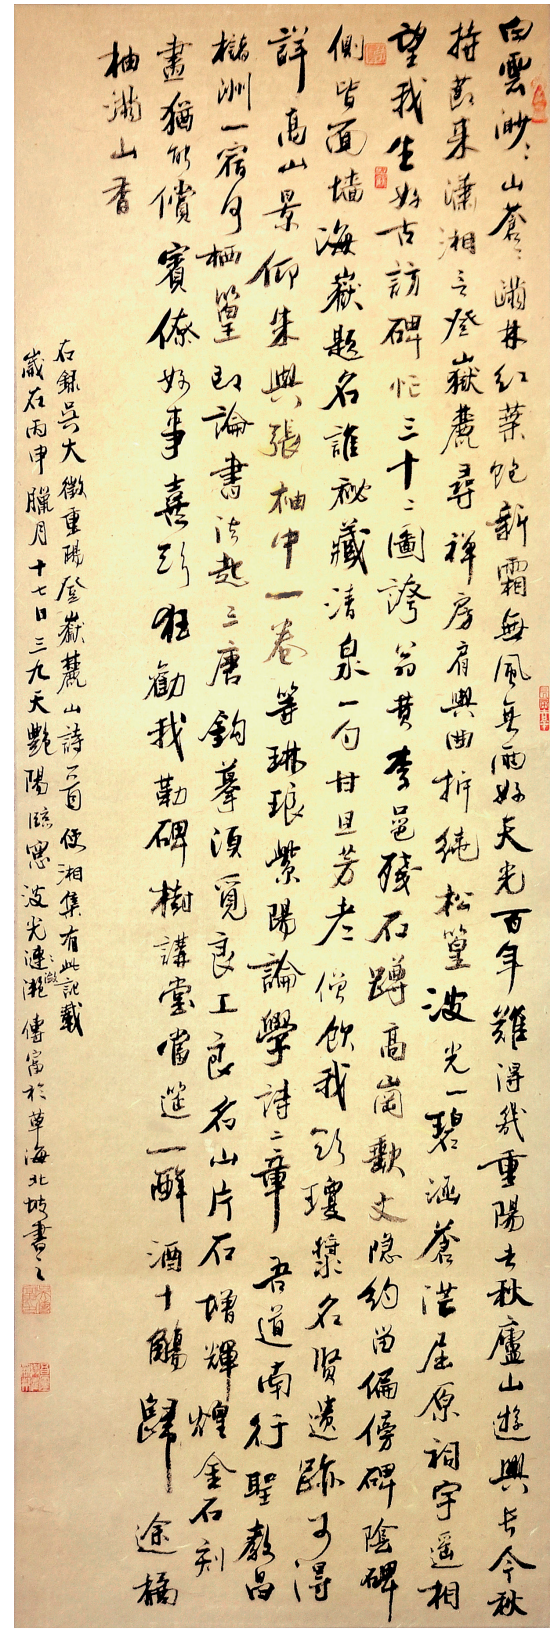 白雲渺〻山蒼〻滿林紅葉飽新霜無風無雨好天光百年難得幾重陽去秋廬山遊興長今秋
持節來瀟湘言登嶽麓尋禪房肩輿曲折繞松篁波光一碧涵蒼茫屈原祠宇遥相
望我生好古訪碑忙三十二圖誇翁黄李邕殘石蹲高崗歎文隐約留偏傍碑陰碑
側皆面墻海嶽題名誰秘藏清泉一勺甘且芳老僧飲我以瓊漿名賢遺跡可得
詳高山景仰朱與張袖中一卷等琳琅紫陽論學詩二章吾道南行聖教昌
槠洲一宿可栖篁即論書法起三唐鈎摹須覓良工良名山片石增輝煌金石刻
畫猶能償賓僚好事喜欲狂勸我勒碑樹講堂當筵一醉酒十觴歸途橘
柚滿山香
右錄吳大澂重陽登嶽麓山詩一首使湘集有此記載
歲在丙申臘月十七日三九天艷陽臨窓波光漣〻瀲灧傳富於草海北坡書之